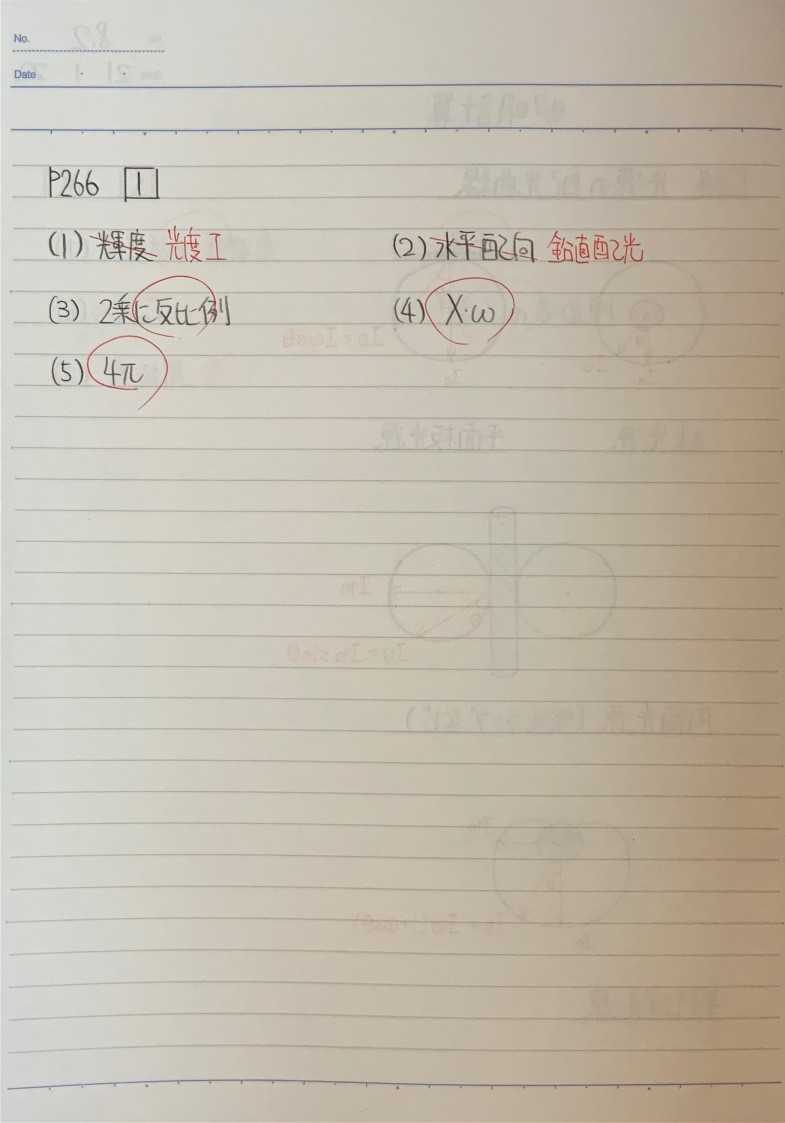 No.
Date
P266 1
(1) 輝度 光度 I (2) 水平配向 鉛直配光
(3) 2乗に反比例 (4) X・ω
(5) 4π